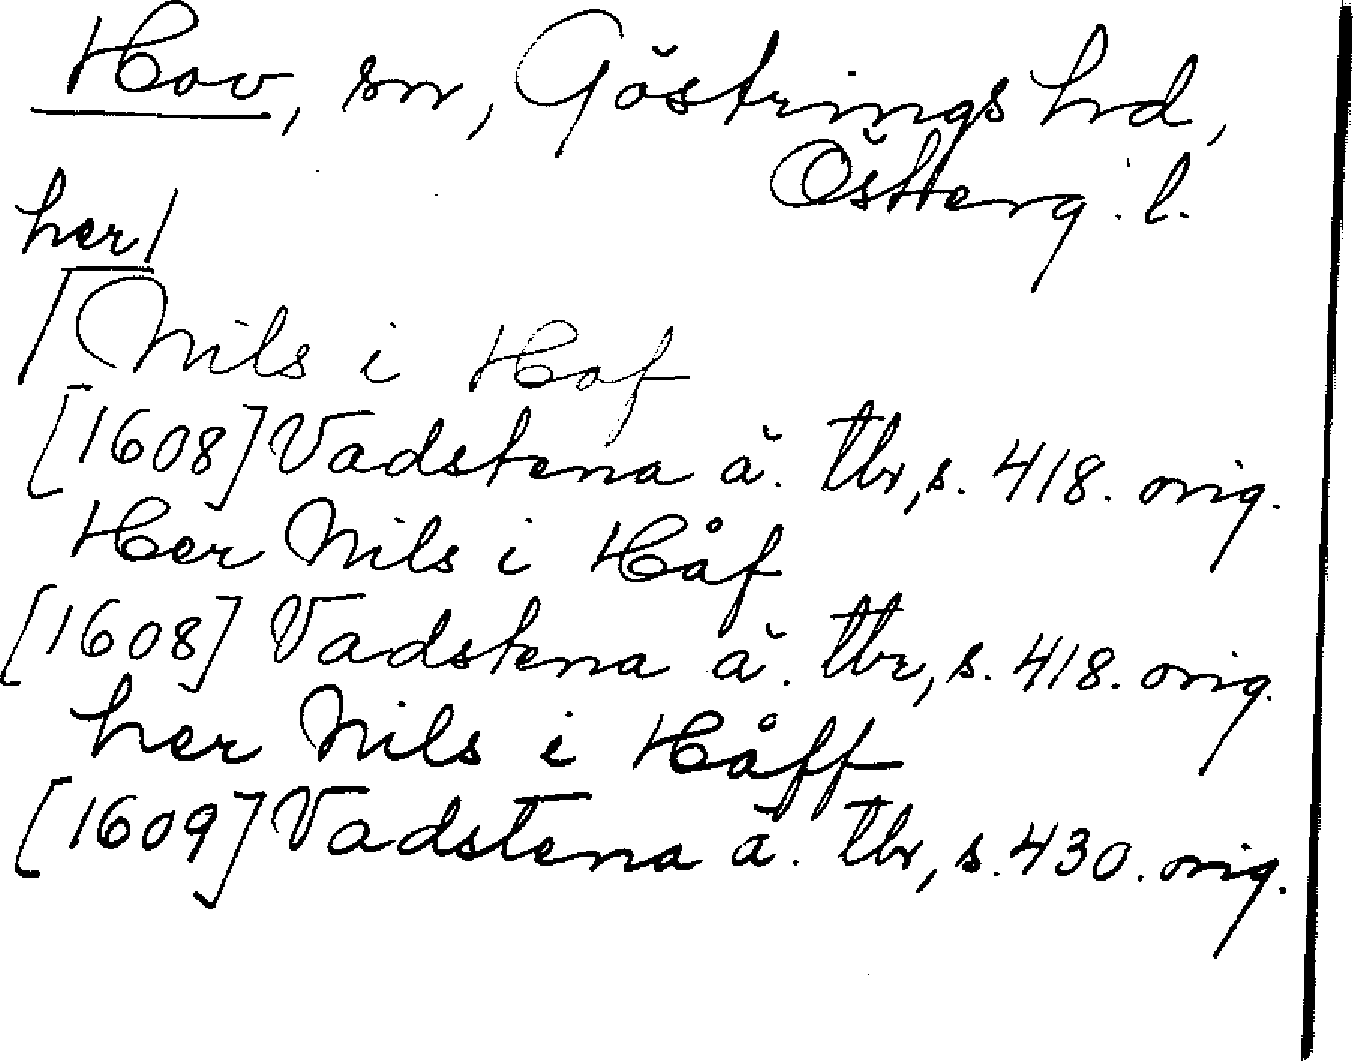 Hov, sn, Göstrings hd,
Österg. l.
her/
/Nils i Hof
[1608] Vadstena ä. tbr, s. 418. orig.
Her Nils i Håf
[1608] Vadstena ä. tbr, s. 418. orig.
her Nils i Håff
[1609] Vadstena ä. tbr, s. 430. orig.